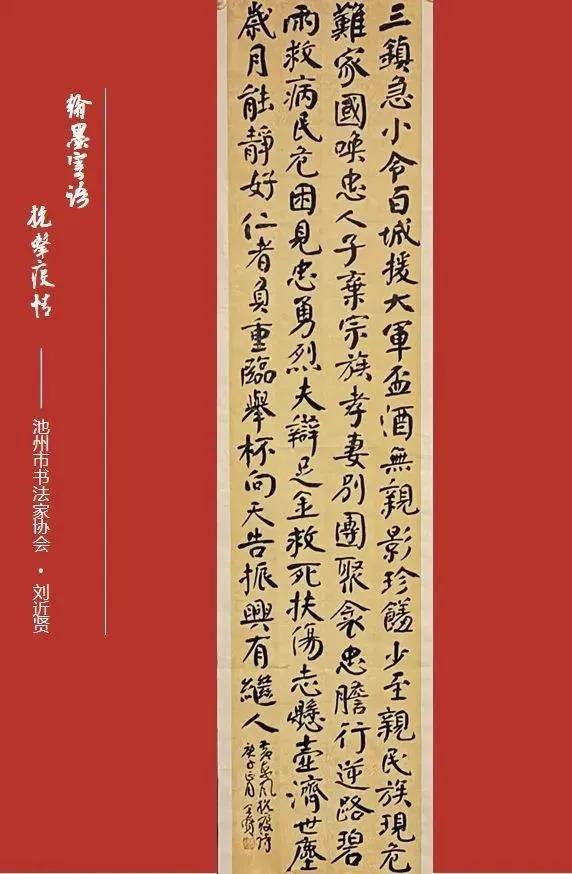 三鎮急小令百城援大軍盃酒無親影珍饈少至親民族現危
難家國喚忠人子棄宗族孝妻別團聚衾忠膽行逆路碧
雨救病民危困見忠勇烈夫辯足金救死扶傷志懸壺濟世塵
歲月能靜好仁者負重臨舉杯向天告振興有繼人
抗疫詩
庚子正月
翰墨寄语
抗擊疫情
——池州市书法家协会·刘近贤